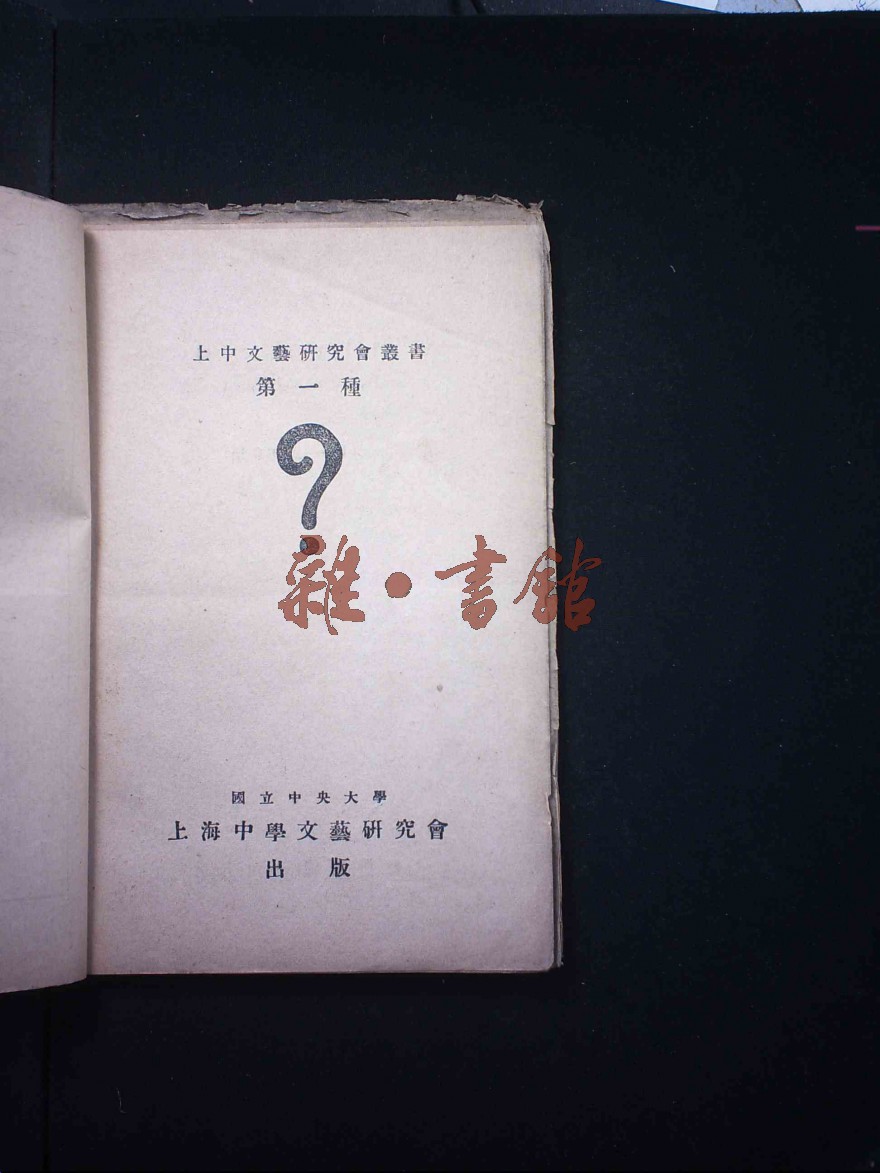 上中文藝研究會叢書
第一種
?
雜·書館
國立中央大學
上海中學文藝研究會
出版